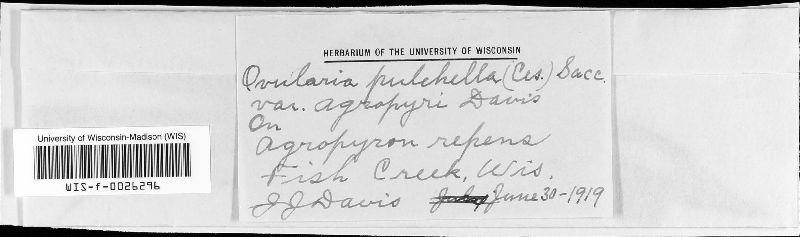 HERBARIUM OF THE UNIVERSITY OF WISCONSIN
Ovularia pulchella (Ces.) Sacc.
var. agropyri Davis
On
Agropyron repens
Fish Creek, Wis.
J J Davis July June 30-1919
University of Wisconsin-Madison (WIS)
WIS-f-0026296